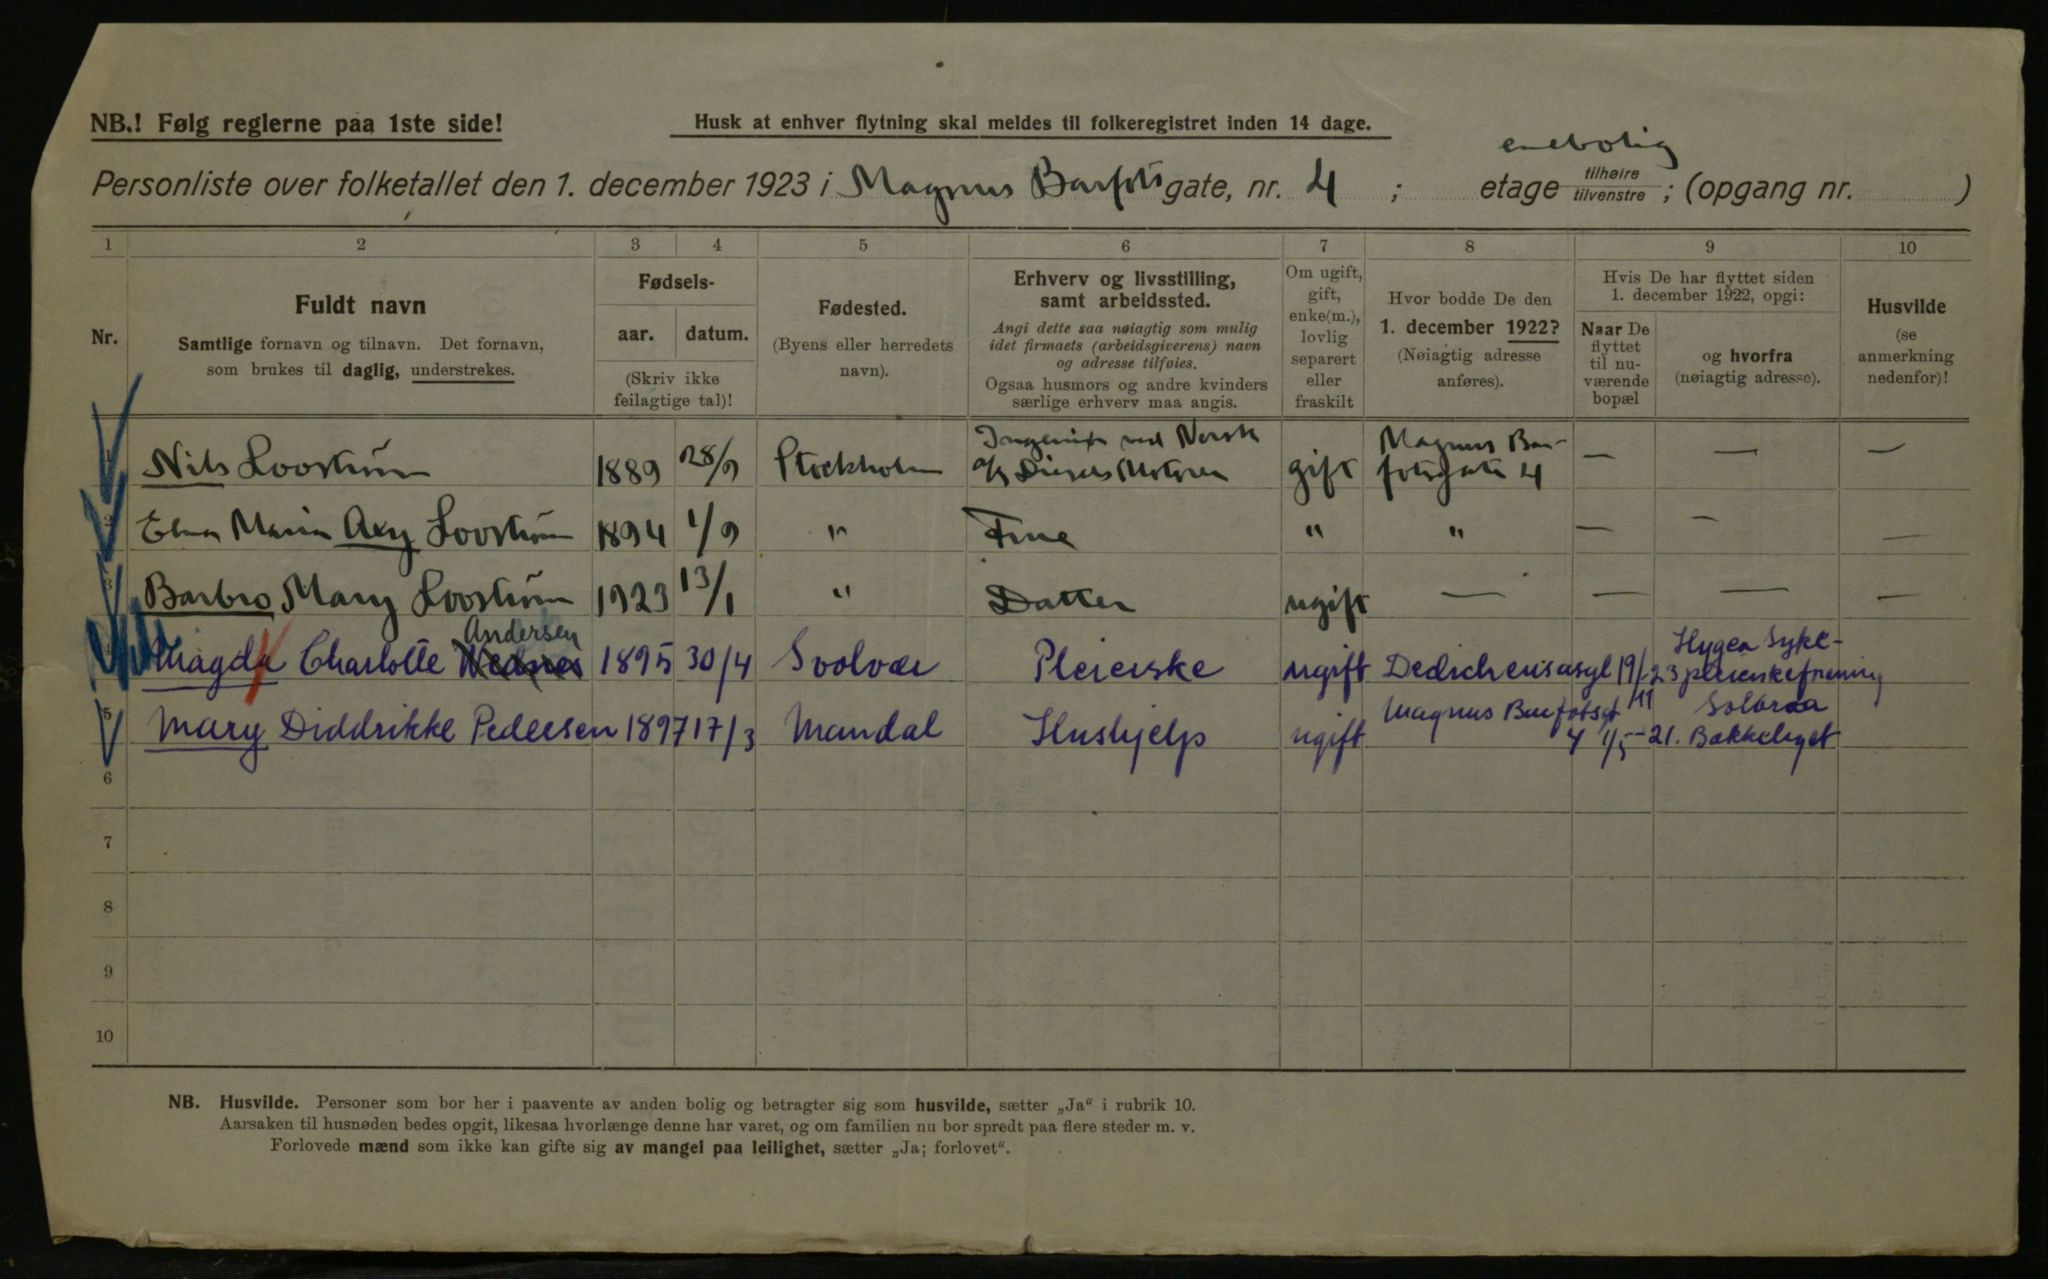 NB.! Følg reglerne paa 1ste side!
Husk at enhver flytning skal meldes til folkeregistret inden 14 dage.
enebolig
Personliste over folketallet den 1. december 1923 i Magnus Barfots gate, nr. 4 ; etage tilhøire tilvenstre ; (opgang nr. )
1 2 3 4 5 6 7 8 9 10
Nr.
Fuldt navn
Samtlige fornavn og tilnavn. Det fornavn,
som brukes til daglig, understrekes.
Fødsels-
aar. datum.
(Skriv ikke
feilagtige tal)!
Fødested.
(Byens eller herredets
navn).
Erhverv og livsstilling,
samt arbeidssted.
Angi dette saa nøiagtig som mulig
idet firmaets (arbeidsgiverens) navn
og adresse tilføies.
Ogsaa husmors og andre kvinders
særlige erhverv maa angis.
Om ugift,
gift,
enke(m.),
lovlig
separert
eller
fraskilt
Hvor bodde De den
1. december 1922?
(Nøiagtig adresse
anføres).
Hvis De har flyttet siden
1. december 1922, opgi:
Naar De
flyttet
til nu-
værende
bopæl
og hvorfra
(nøiagtig adresse).
Husvilde
(se
anmerkning
nedenfor)!
Ingeniør ved Norsk Magnus Bar-
1 Nils Loostrøm 1889 28/9 Stockholm A/S Diesels Motorer gift fotsgate 4 — — —
2 Maria Axy Loostrøm 1894 1/9 " Frue " " — — —
3 Barbro Mary Loostrøm 1923 13/1 " Datter ugift — — — —
Andersen Hygea Syke-
4 Magda Charlotte 1895 30/4 Svolvær Pleierske ugift Dedichensasyl 19/11 - 23 pleierskeforening
Magnus Barfotsgt Solbraa
5 Mary Diddrikke Pedersen 1897 17/3 Mandal Hushjelp ugift 4 1/5 - 21. Bækkelaget
6
7
8
9
10
NB. Husvilde. Personer som bor her i paavente av anden bolig og betragter sig som husvilde, sætter „Ja“ i rubrik 10.
Aarsaken til husnøden bedes opgit, likesaa hvorlænge denne har varet, og om familien nu bor spredt paa flere steder m. v.
Forlovede mænd som ikke kan gifte sig av mangel paa leilighet, sætter „Ja; forlovet“.